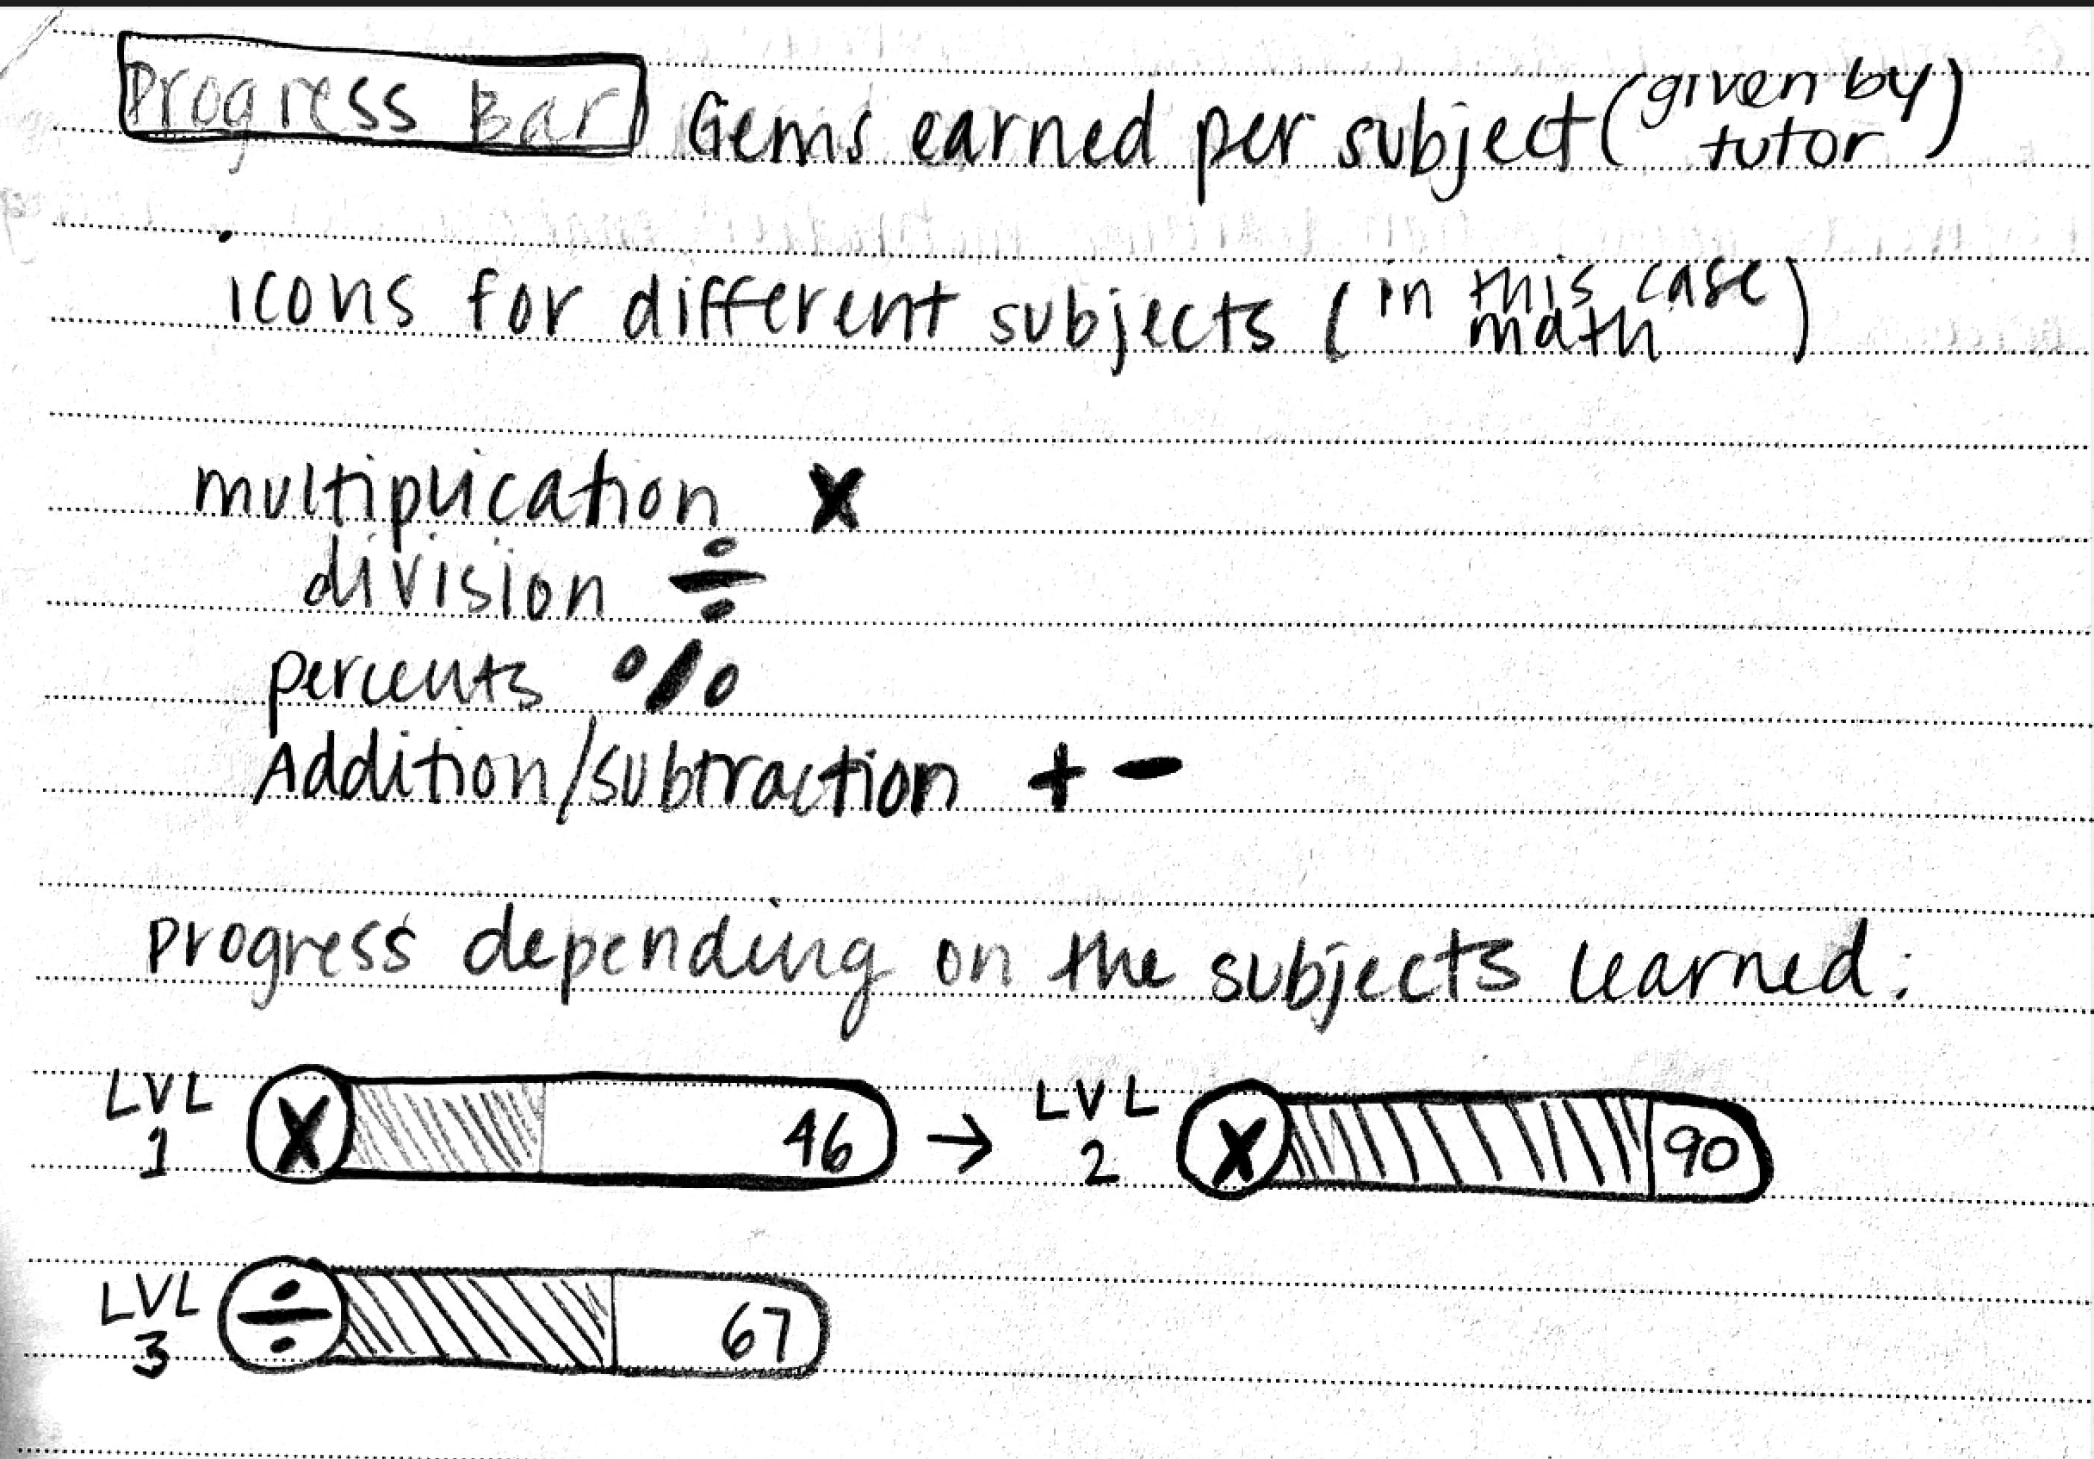 Progress Bar Gems earned per subject (given by tutor)
icons for different subjects (in this case math)
multiplication X
division ÷
percents %
Addition/subtraction + -
Progress depending on the subjects learned:
LVL 1 X 46 → LVL 2 X 90
LVL 3 ÷ 67